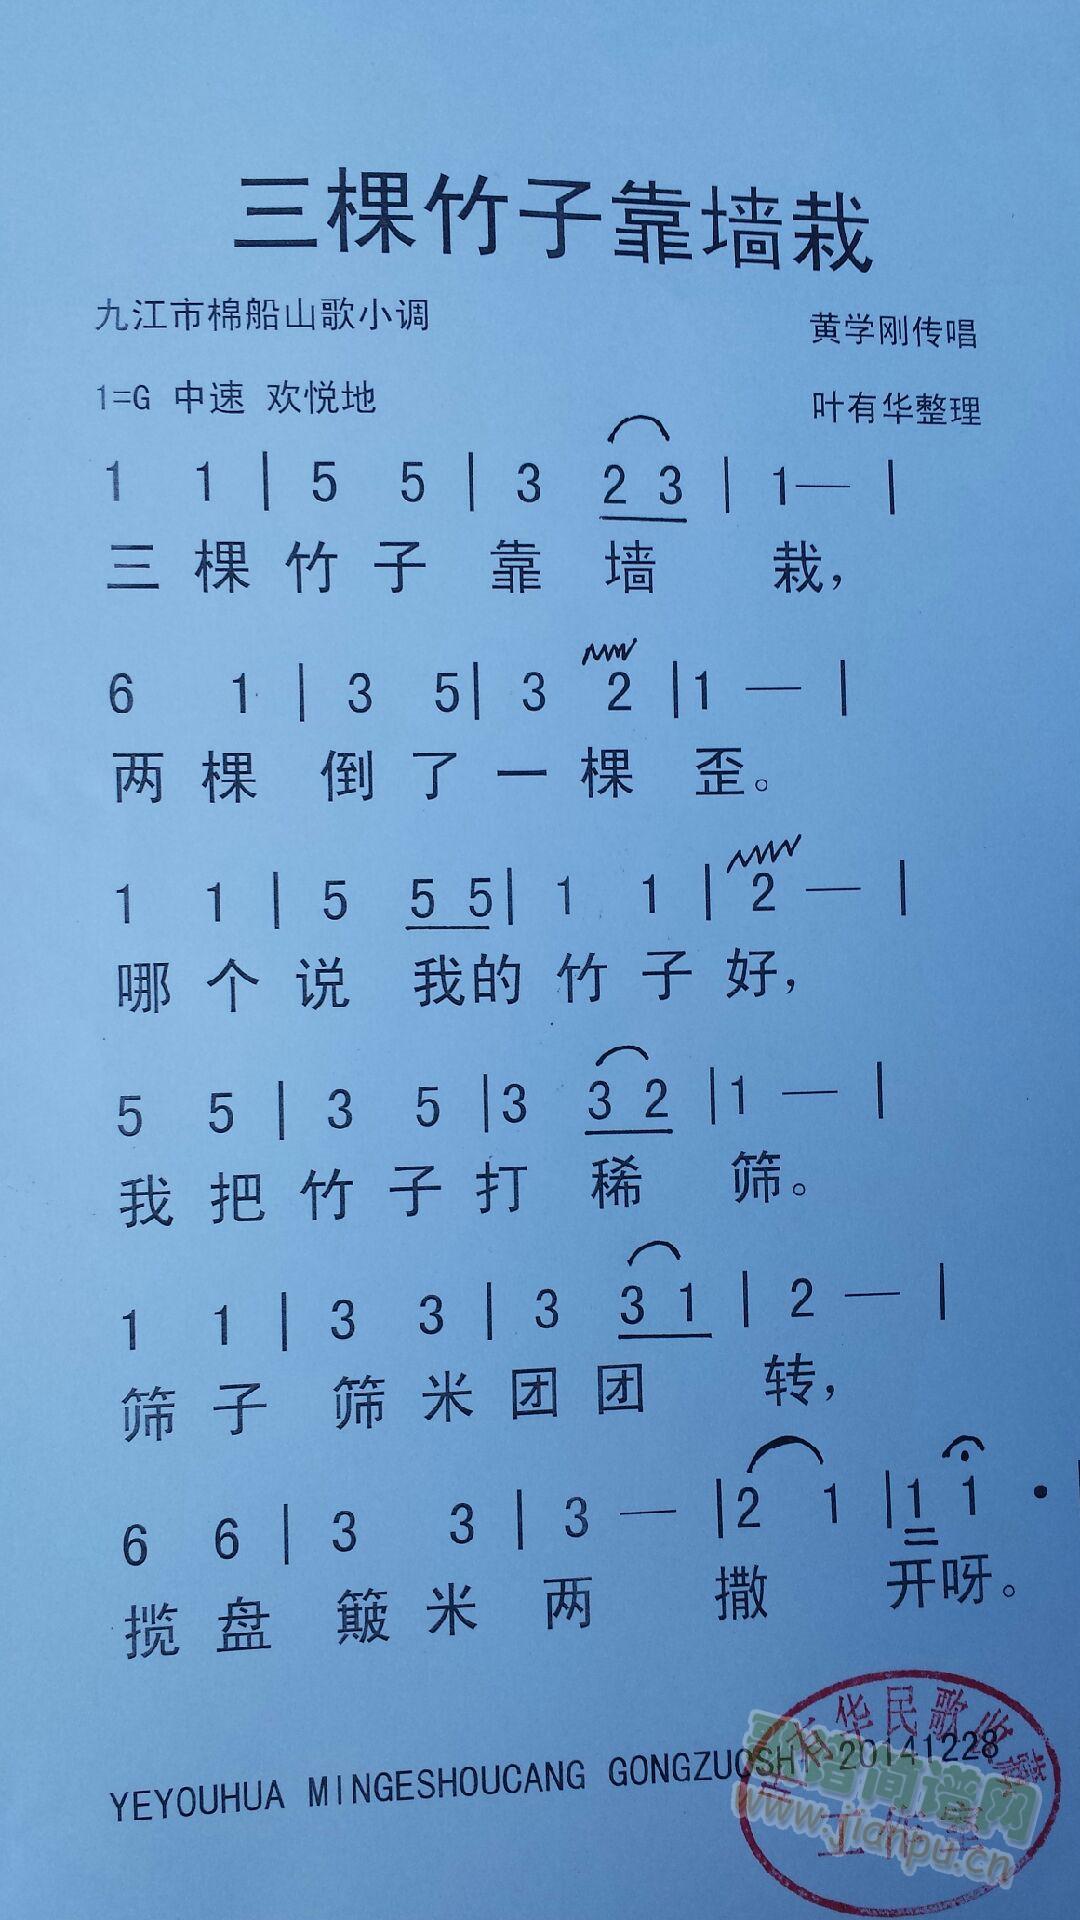 三棵竹子靠墙栽
九江市棉船山歌小调
黄学刚传唱
1=G 中速 欢悦地
叶有华整理
1 1 | 5 5 | 3 2 3 | 1— |
三棵竹子靠墙栽，
6 1 | 3 5 | 3 2 | 1 — |
两棵倒了一棵歪。
1 1 | 5 5 5 | 1 1 | 2 — |
哪个说我的竹子好，
5 5 | 3 5 | 3 3 2 | 1 — |
我把竹子打稀筛。
1 1 | 3 3 | 3 3 1 | 2 — |
筛子筛米团团转，
6 6 | 3 3 | 3 — | 2 1 | 1 1 ·
揽盘簸米两撒开呀。
YEYOUHUA MINGESHOUCANG GONGZUOSHI 20141228
华民歌收藏
工作室
歌谱简谱网
www.jianpu.cn